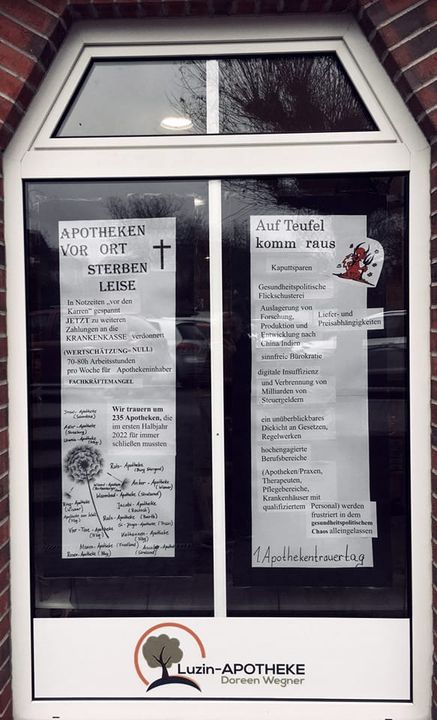 APOTHEKEN
VOR ORT
STERBEN
LEISE
In Notzeiten „vor den
Karren" gespannt
JETZT zu weiteren
Zahlungen an die
KRANKENKASSE verdonnert
(WERTSCHÄTZUNG= NULL)
70-80h Arbeitsstunden
pro Woche für Apothekeninhaber
FACHKRÄFTEMANGEL
Wir trauern um
235 Apotheken, die
im ersten Halbjahr
2022 für immer
schließen mussten
Apotheke
Adler-Apotheke
Apotheke
Rats-Apotheke
Anker-Apotheke
Jacobi-Apotheke
Rats-Apotheke
Apotheke
Auf Teufel
komm raus
Kaputtsparen
Gesundheitspolitische
Flickschusterei
Auslagerung von
Forschung,
Produktion und
Entwicklung nach
China Indien
Liefer-und
Preisabhängigkeiten
sinnfreie Bürokratie
digitale Insuffizienz
und Verbrennung von
Milliarden von
Steuergeldern
ein unüberblickbares
Dickicht an Gesetzen,
Regelwerken
hochengagierte
Berufsbereiche
(Apotheken/Praxen,
Therapeuten,
Pflegebereiche,
Krankenhäuser mit
qualifiziertem Personal) werden
frustriert in dem
gesundheitspolitischem
Chaos alleingelassen
1. Apothekentrauertag
Luzin-APOTHEKE
Doreen Wegner